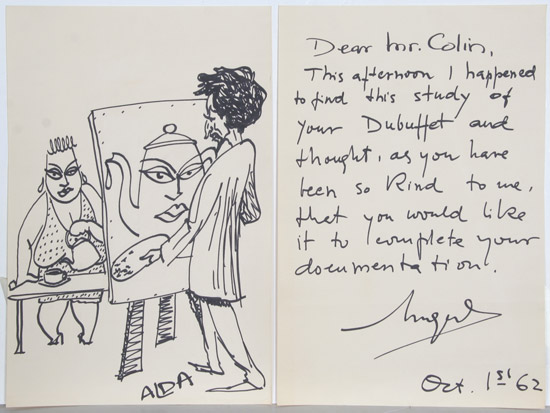 ALDA
Dear Mr. Colin,
This afternoon I happened
to find this study of
your Dubuffet and
thought, as you have
been so Kind to me,
that you would like
it to complete your
documentation.
Oct. 1st 62